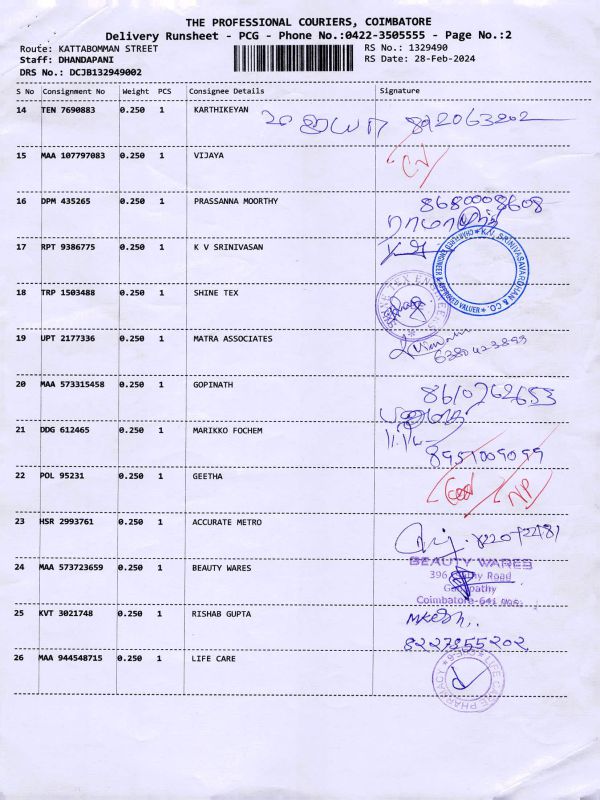 THE PROFESSIONAL COURIERS, COIMBATORE
Delivery Runsheet - PCG - Phone No.:0422-3505555 - Page No.:2
Route: KATTABOMMAN STREET
RS No.: 1329490
Staff: DHANDAPANI
RS Date: 28-Feb-2024
DRS No.: DCJB132949002
S No Consignment No Weight PCS Consignee Details Signature
14 TEN 7690883 0.250 1 KARTHIKEYAN
15 MAA 107797083 0.250 1 VIJAYA
16 DPM 435265 0.250 1 PRASSANNA MOORTHY 8680008608
17 RPT 9386775 0.250 1 K V SRINIVASAN
K.V. SRINIVASAVARDHAN & CO.
CHARTERED ENGINEER & APPROVED VALUER
18 TRP 1503488 0.250 1 SHINE TEX
19 UPT 2177336 0.250 1 MATRA ASSOCIATES
6380423893
20 MAA 573315458 0.250 1 GOPINATH 8610762653
21 DDG 612465 0.250 1 MARIKKO FOCHEM
22 POL 95231 0.250 1 GEETHA
23 HSR 2993761 0.250 1 ACCURATE METRO
24 MAA 573723659 0.250 1 BEAUTY WARES
BEAUTY WARES
Road
Coimbatore-641
25 KVT 3021748 0.250 1 RISHAB GUPTA
8227355202
26 MAA 944548715 0.250 1 LIFE CARE
LIFE CARE PHARMACY